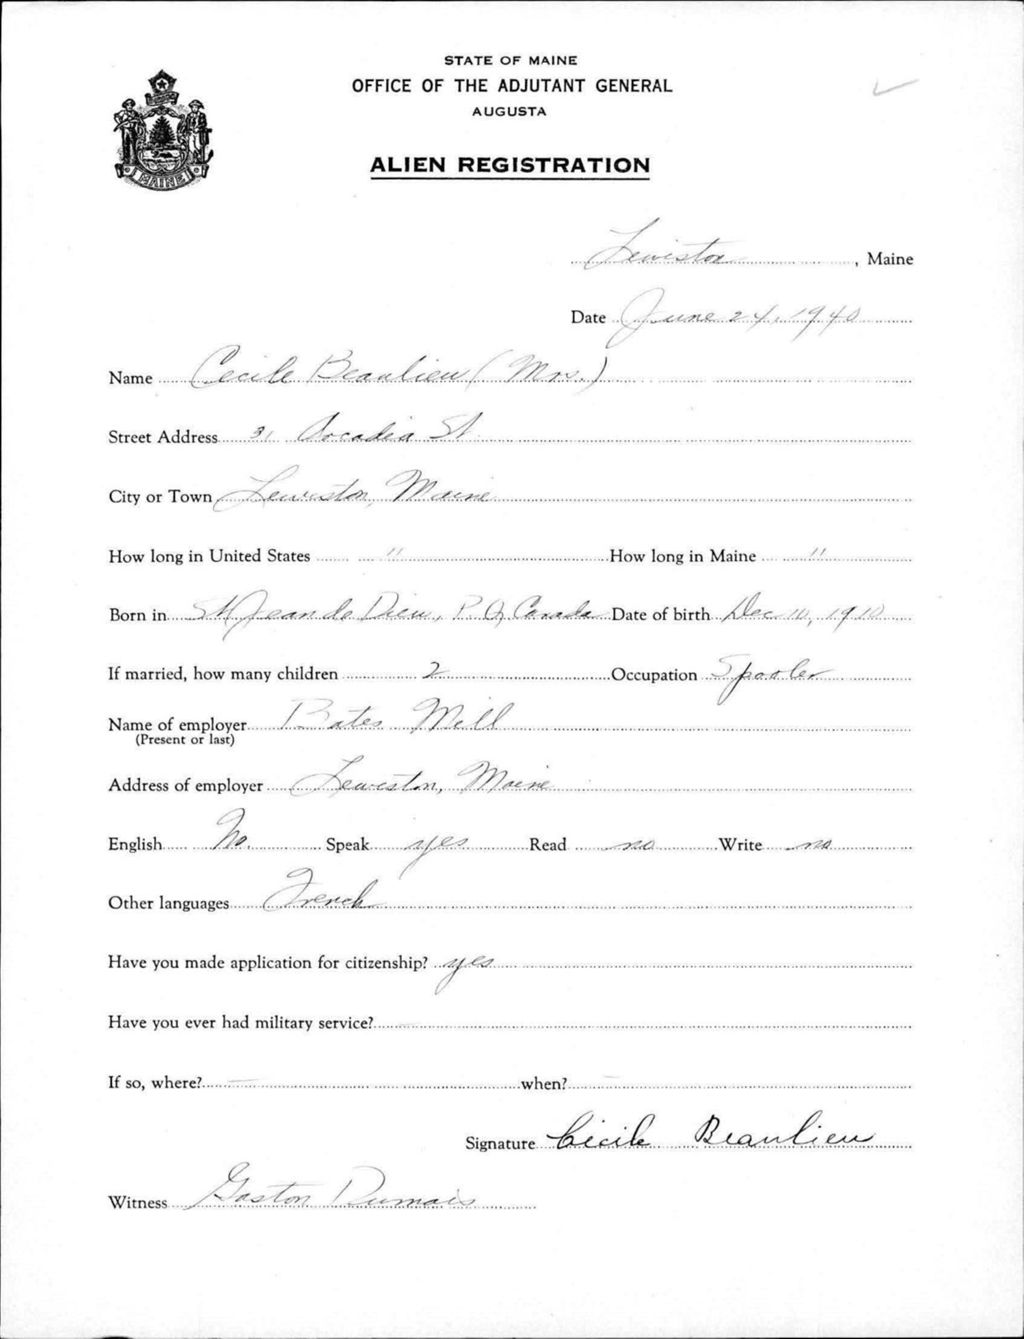 STATE OF MAINE
OFFICE OF THE ADJUTANT GENERAL
AUGUSTA
MAINE
ALIEN REGISTRATION
Lewiston, Maine
Date June 24, 1940
Name Cecile Beaulieu (Mrs.)
Street Address 31 Arcadia St
City or Town Lewiston, Maine
How long in United States 11 How long in Maine 11
Born in St Jean de Dieu, P.Q, Canada Date of birth Dec 10, 1910
If married, how many children 2 Occupation Spooler
Name of employer Bates Mill
(Present or last)
Address of employer Lewiston, Maine
English No. Speak yes Read no Write no
Other languages French
Have you made application for citizenship? yes
Have you ever had military service? —
If so, where? — when? —
Signature Cécile Beaulieu
Witness Gaston Dumais